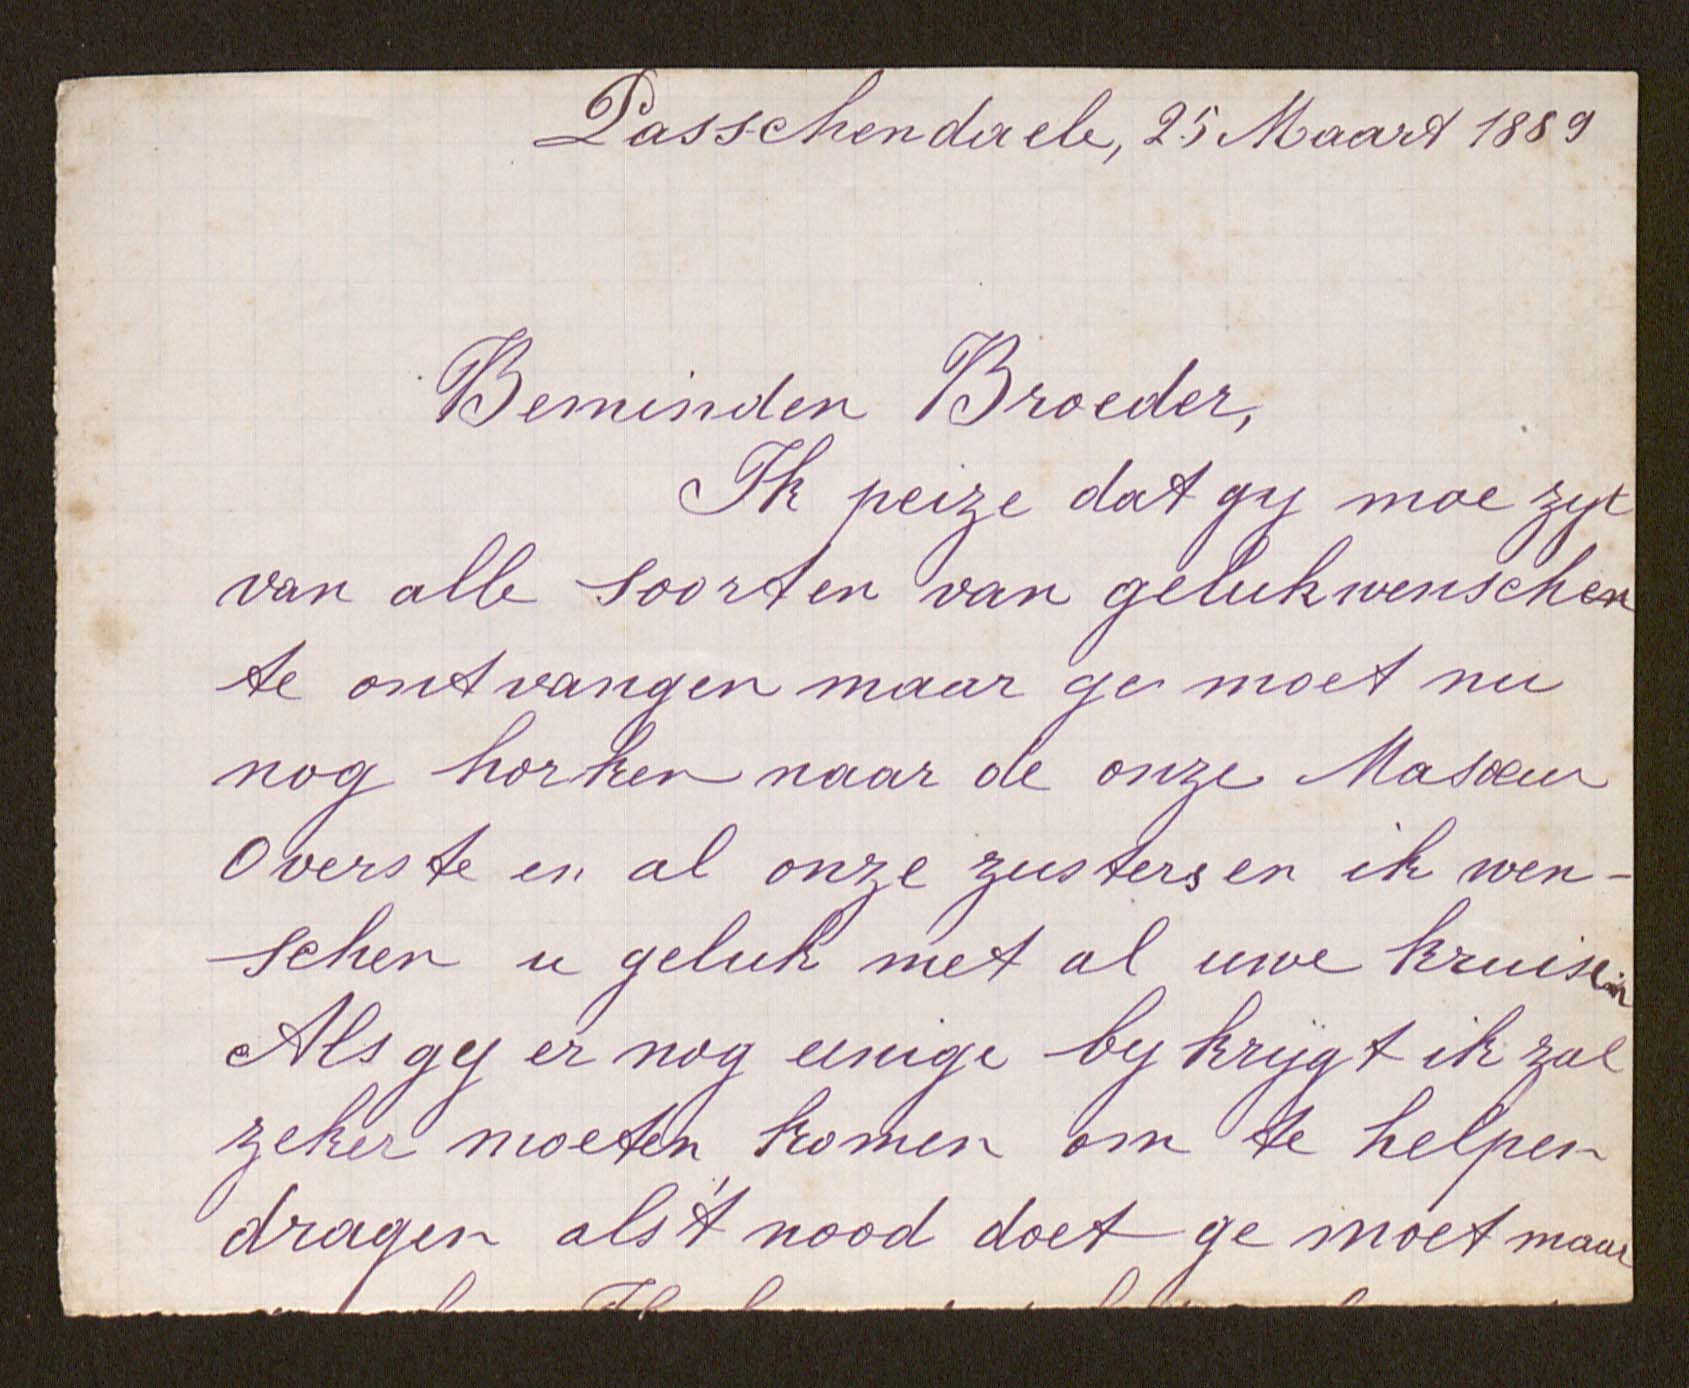 Passchendaele, 25 Maart 1889
Beminden Broeder,
Ik peize dat gy moe zyt
van alle soorten van gelukwenschen
te ontvangen maar ge moet nu
nog horken naar de onze Masœur
Overste en al onze zusters en ik wen-
schen u geluk met al uwe kruisen
Als gy er nog eenige by krygt ik zal
zeker moeten komen om te helpen
dragen als 't nood doet ge moet maar